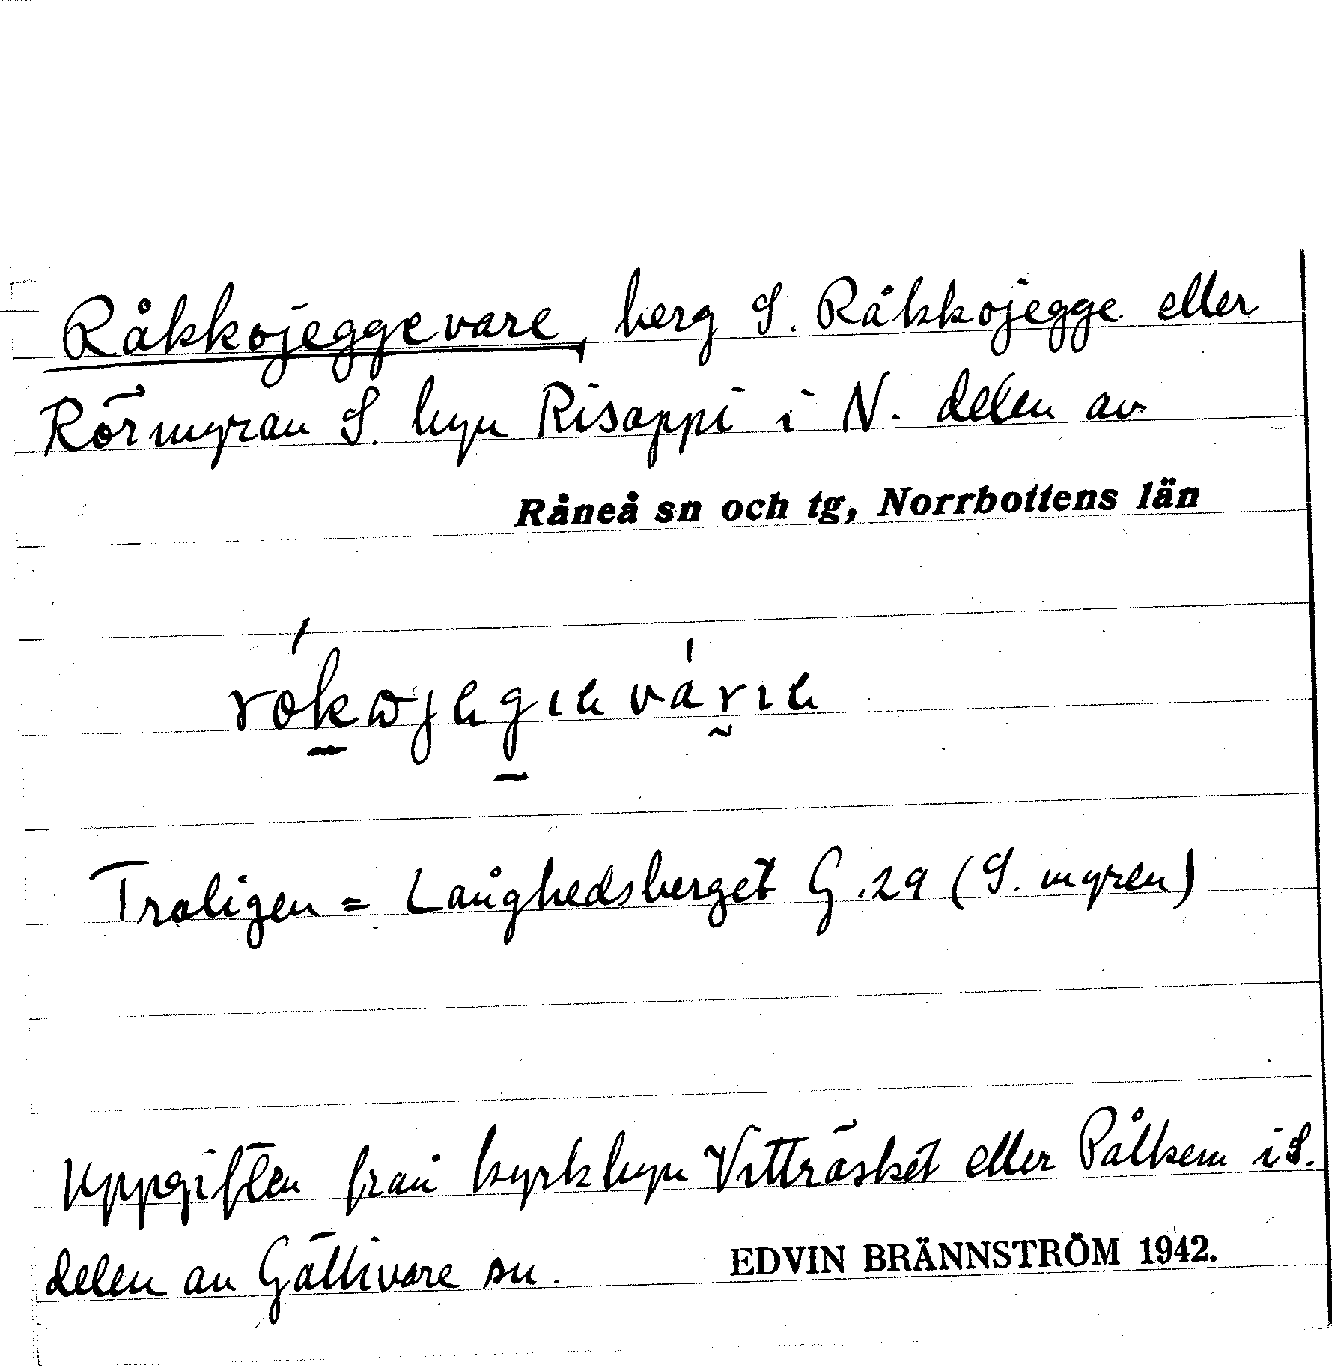 Råkkojeggevare, berg S. Råkkojegge eller
Rörmyran S. byn Risappi i N. delen av
Råneå sn och tg, Norrbottens län
rókωjegıe várıe
Troligen = Långhedsberget G.29 (S. myren)
Uppgiften från kyrkbyn Vitträsket eller Pålkem i S.
delen av Gällivare sn.
EDVIN BRÄNNSTRÖM 1942.